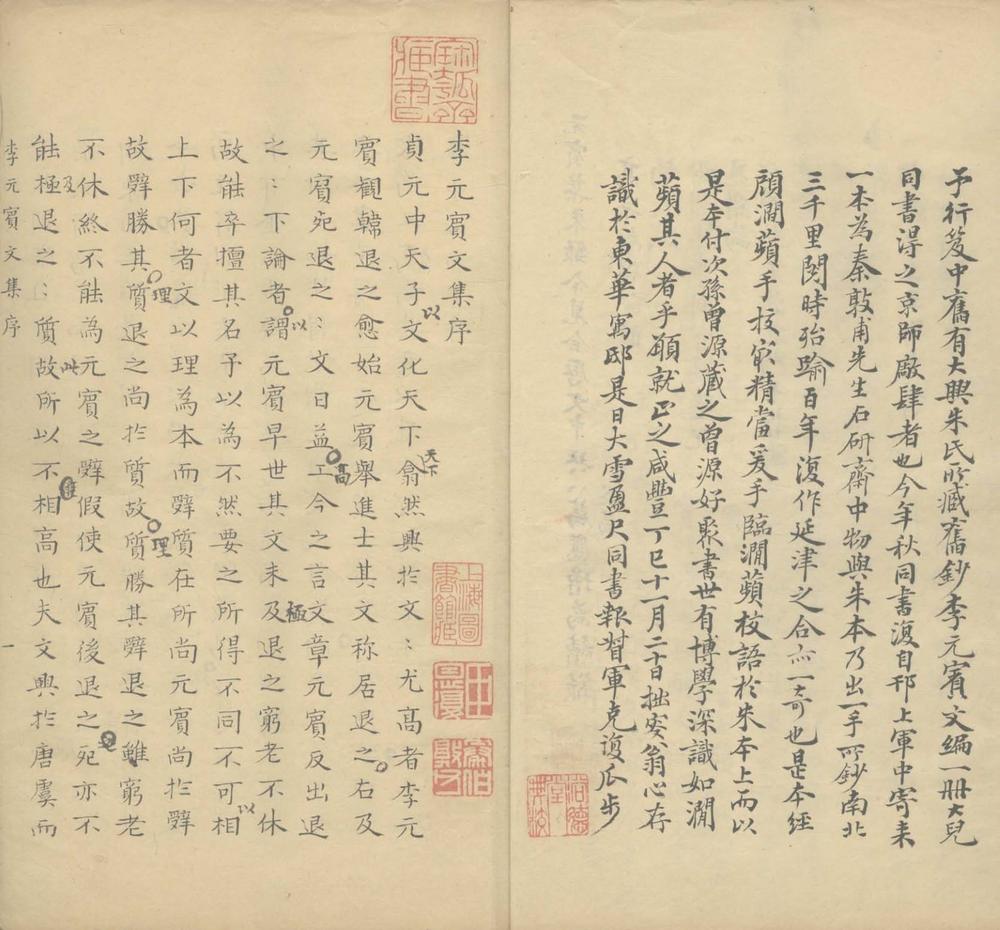 予行笈中舊有大興朱氏所臧舊鈔李元賓文編一冊大兒
同書淂之京師廠肆者也今年秋同書復自邗上軍中寄来
一本為秦敦甫先生石研齋中物與朱本乃出一手所鈔南北
三千里閲時殆踰百年復作延津之合亦一奇也是本經
顧澗蘋手校㝡精當爰手臨澗蘋校語於朱本上而以
是本付次孫曾源蔵之曾源好聚書世有博學深識如澗
蘋其人者乎願就正之咸豐丁巳十一月二十日拙安翁心存
識於東華寓邸是日大雪盈尺同書報督軍克復瓜步
李元賓文集序
貞元中天子以文化天下天下翕然興扵文〻尤髙者李元
賓觀韓退之愈始元賓舉進士其文称居退之右及
元賓死退之〻文日益高工今之言文章元賓反出退
之〻下論者以謂元賓早世其文未極及退之窮老不休
故能卒擅其名予以為不然要之所得不同不可以相
上下何者文以理為本而辤質在所尚元賓尚扵辤
故辤勝其理質退之尚扵質故理質勝其辤退之雖窮老
不休終不能為元賓之辤假使元賓後退之死亦不
能及極退之〻質此故所以不相高也夫文興扵唐虞而
李元賓文集序
一
上海圖書館藏